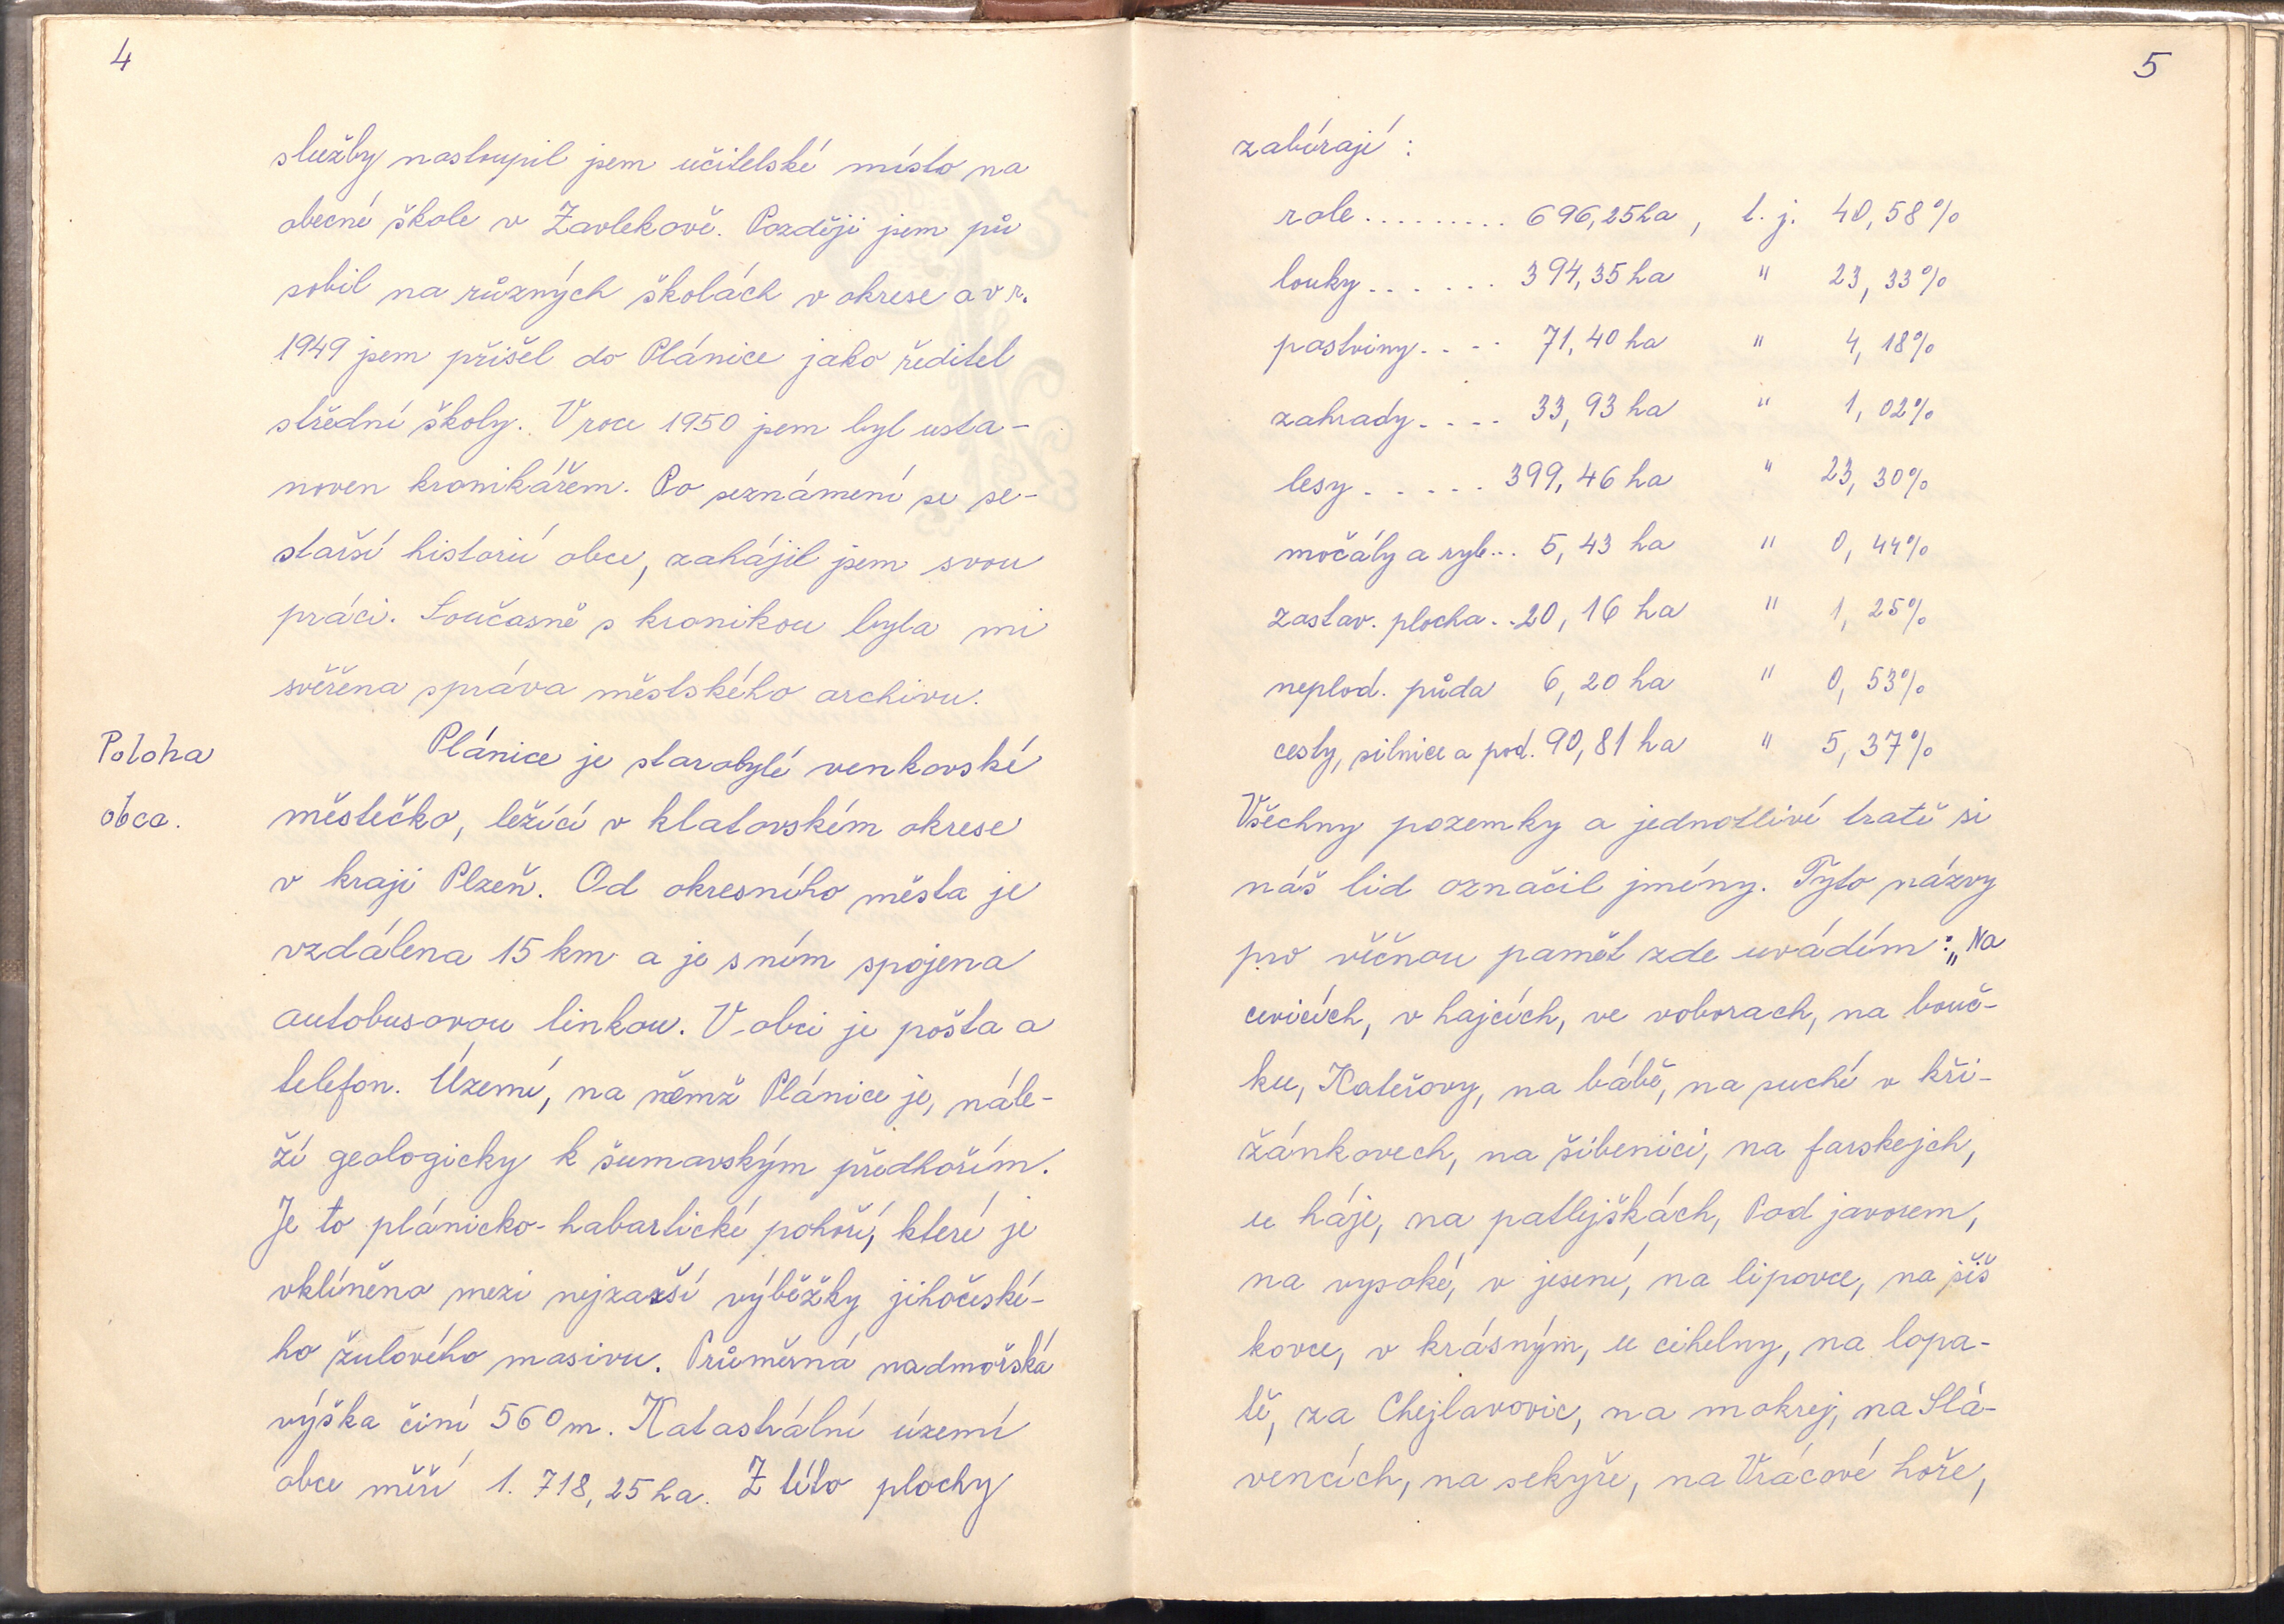 4
služby nastoupil jsem učitelské místo na
obecné škole v Zavlekově. Později jsem pů
sobil na různých školách v okrese a v r.
1949 jsem přišel do Plánice jako ředitel
střední školy. V roce 1950 jsem byl usta-
noven kronikářem. Po seznámení se se-
starší historií obce, zahájil jsem svou
práci. Současně s kronikou byla mi
svěřena správa městského archivu.
Poloha
obce.
Plánice je starobylé venkovské
městečko, ležící v klatovském okrese
v kraji Plzeň. Od okresního města je
vzdálena 15 km a je s ním spojena
autobusovou linkou. V obci je pošta a
telefon. Území, na němž Plánice je, nále-
ží geologicky k šumavským předhořím.
Je to plánicko-habartické pohoří, které je
vklíněno mezi nejzazší výběžky jihočeské-
ho žulového masivu. Průměrná nadmořská
výška činí 560 m. Katastrální území
obce měří 1.718,25 ha. Z této plochy
5
zabírají :
role ......... 696,25 ha, t. j. 40,58%
louky ...... 394,35 ha " 23,33%
pastviny .... 71,40 ha " 4,18%
zahrady .... 33,93 ha " 1,02%
lesy ..... 399,46 ha " 23,30%
močály a ryb... 5,43 ha " 0,44%
zastav. plocha .. 20,16 ha " 1,25%
neplod. půda 6,20 ha " 0,53%
cesty, silnice a pod. 90,81 ha " 5,37%
Všechny pozemky a jednotlivé tratě si
náš lid označil jmény. Tyto názvy
pro věčnou paměť zde uvádím: „Na
cvicích, v hajcích, ve voborach, na bouč-
ku, Kateřovy, na bábě, na suché v kři-
žánkovech, na šibenici, na farskejch,
u háje, na patlejškách, Pod javorem,
na vysoké, v jesení, na lipovce, na šiš
kovce, v krásným, u cihelny, na lopa-
tě, za Chejlavovic, na mokrej, na Slá-
vencích, na sekyře, na Vrácové hoře,